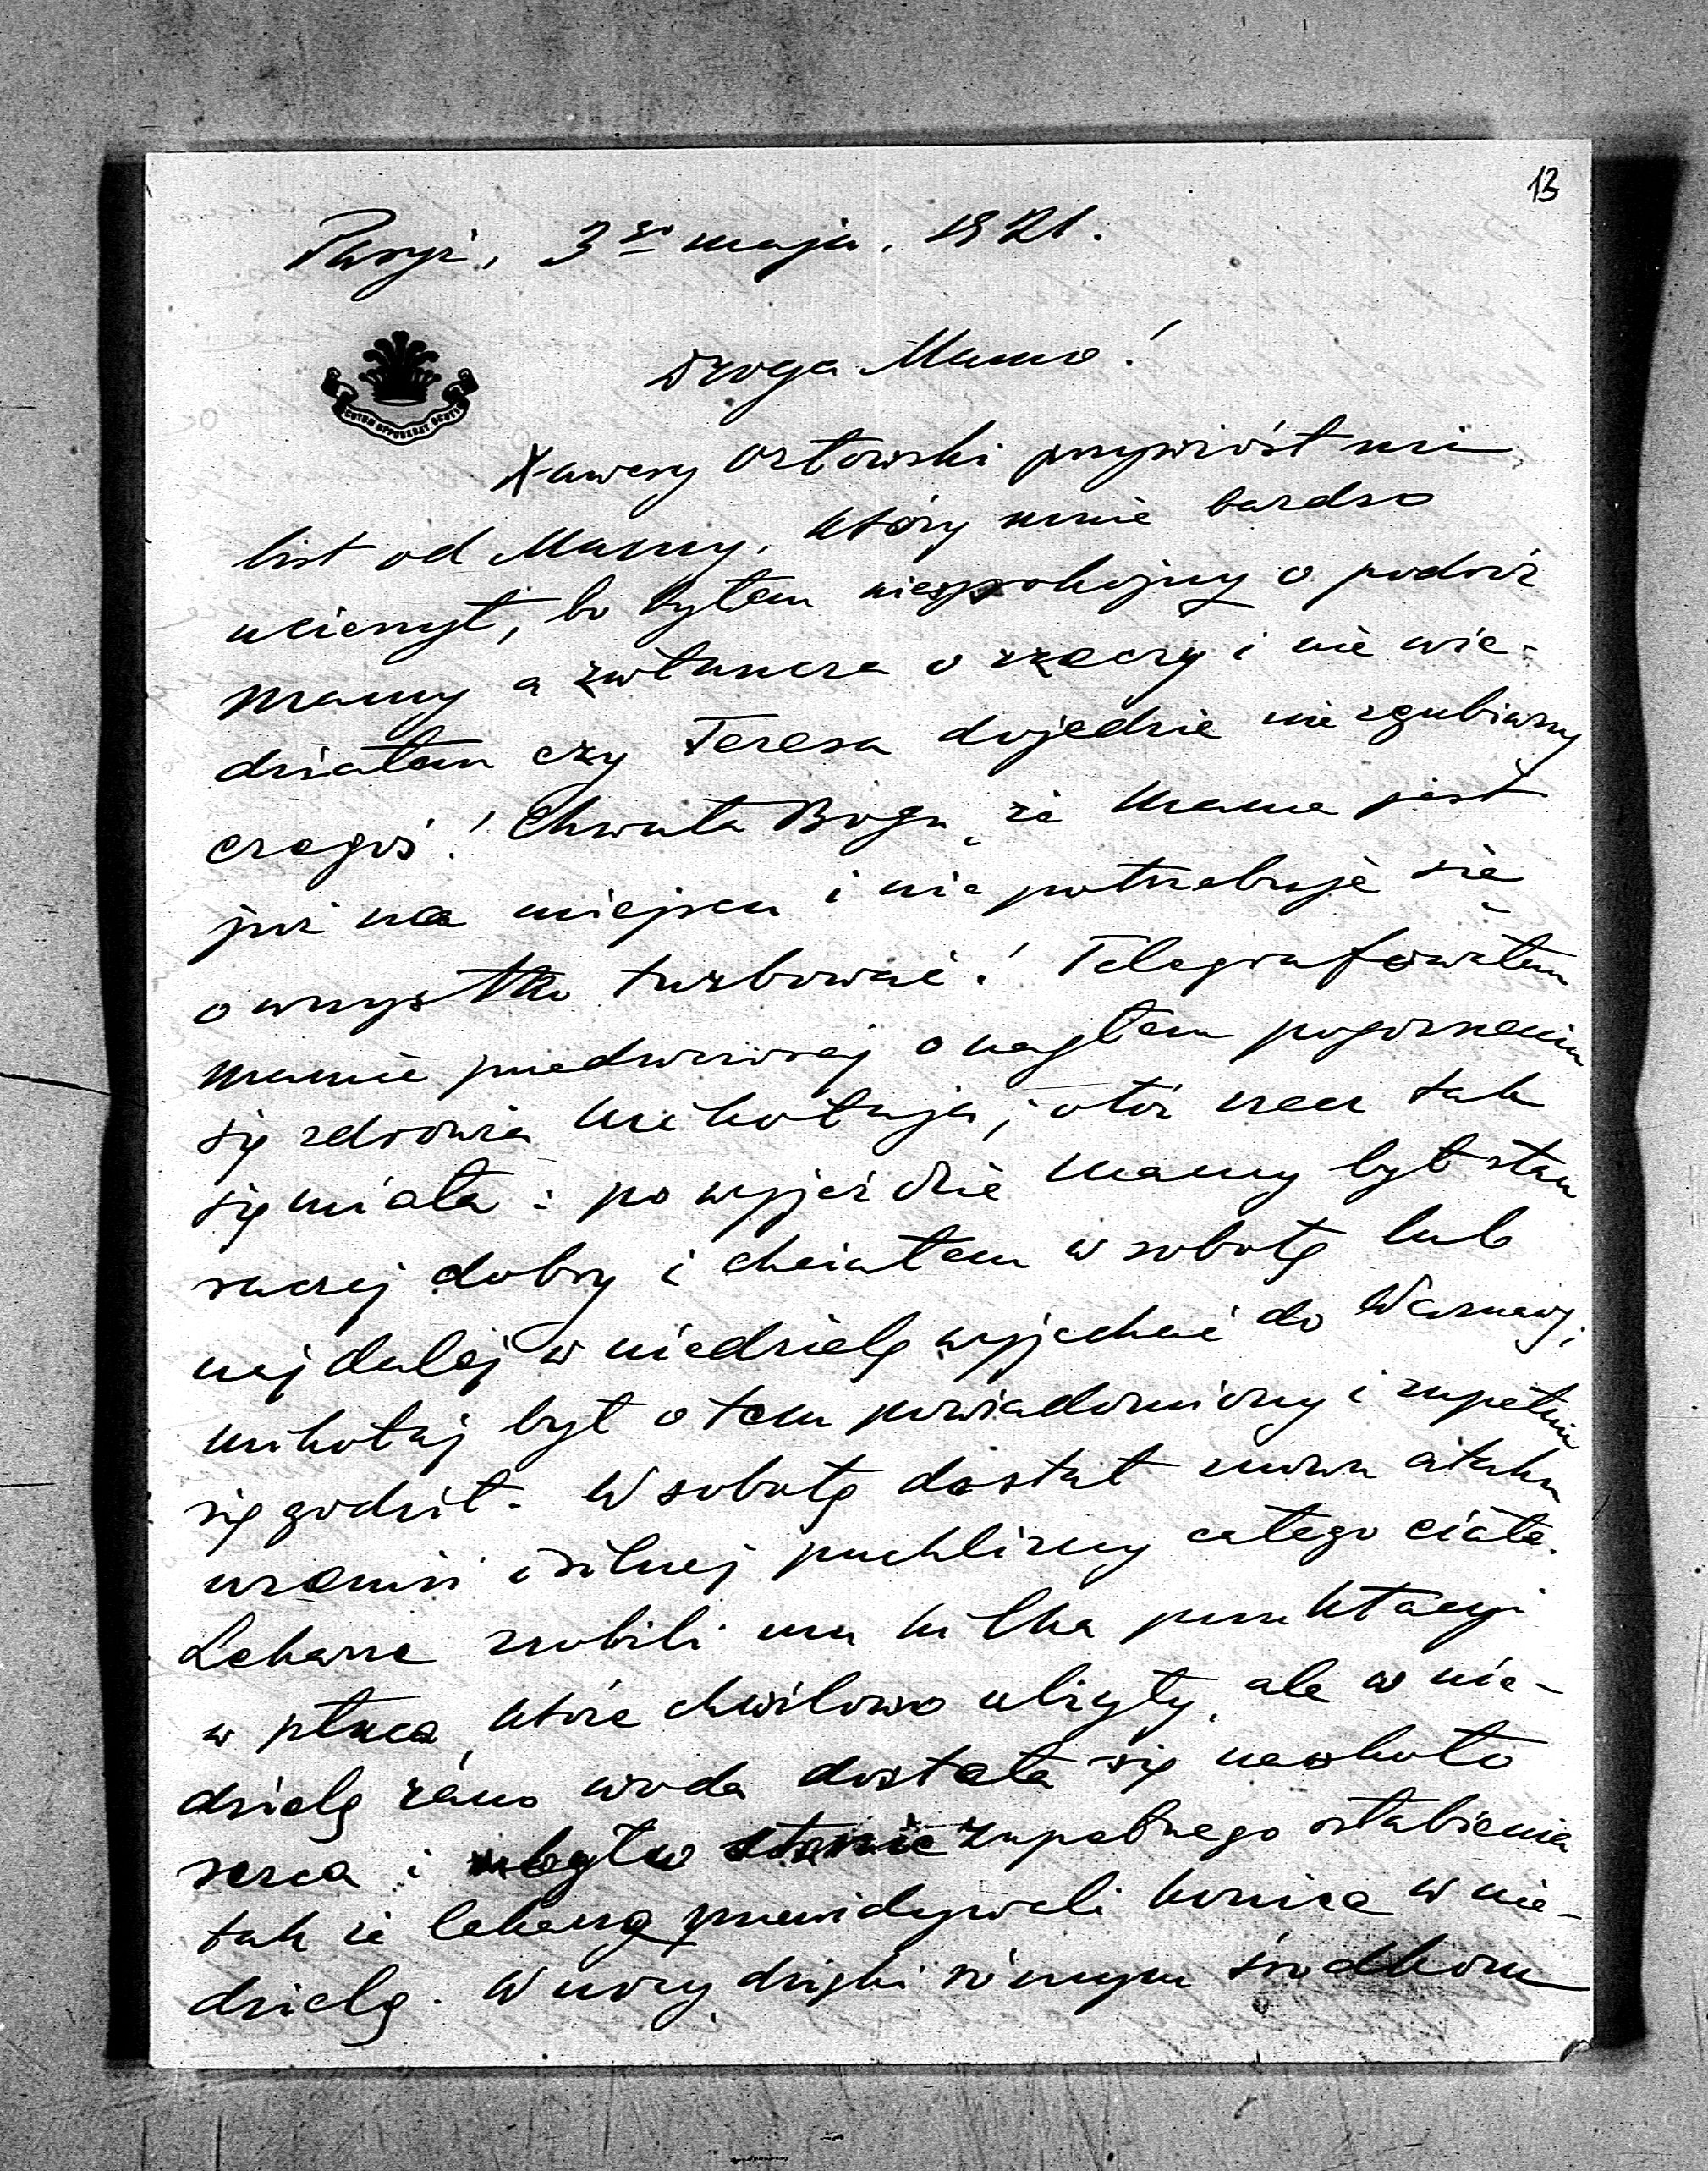 13
Paryż, 3go maja. 1921.
Droga Mamo!
Xawery Orłowski przywiózł mi
list od Mamy, który mnie bardzo
ucieszył, bo byłem niespokojny o podróż
Mamy a zwłaszcza o rzeczy i nie wie-
działem czy Teresa dojedzie nie zgubiwszy
czegoś! Chwała Bogu, że Mama jest
już na miejscu i nie potrzebuje się
o wszystko turbować! Telegrafowałem
Mamie przedwczoraj o nagłem pogorszeniu
się zdrowia Mikołaja; otóż rzecz tak
się miała: po wyjeździe Mamy był stan
raczej dobry i chciałem w sobotę lub
najdalej w niedzielę wyjechać do Warszawy;
Mikołaj był o tem powiadomiony i zupełnie
się godził. W sobotę dostał znowu ataku
uremii i silnej puchliny całego ciała.
Lekarze zrobili mu kilka punktacyi
w płuca, które chwilowo ulżyły, ale w nie-
dzielę rano woda dostała się naokoło
serca i był w stanie zupełnego osłabienia
tak że lekarze przewidywali końca w nie-
dzielę. W nocy dzięki różnym środkom